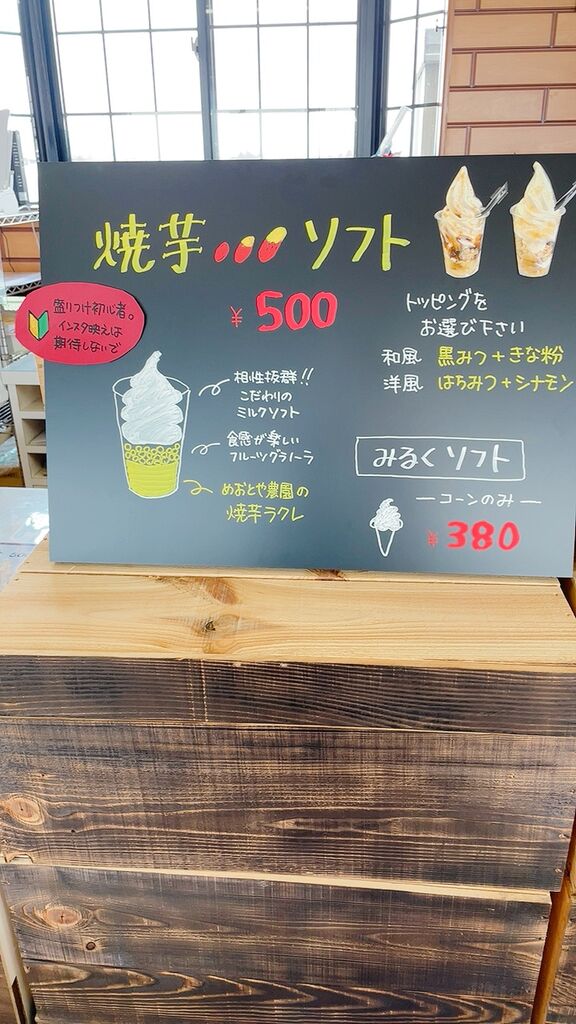 焼芋 ソフト
¥500
盛りつけ初心者。
インスタ映えは
期待しないで
トッピングを
お選び下さい
和風 黒みつ+きな粉
洋風 はちみつ+シナモン
相性抜群!!
こだわりの
ミルクソフト
食感が楽しい
フルーツグラノーラ
めおとや農園の
焼芋ラクレ
みるくソフト
ーコーンのみー
¥380